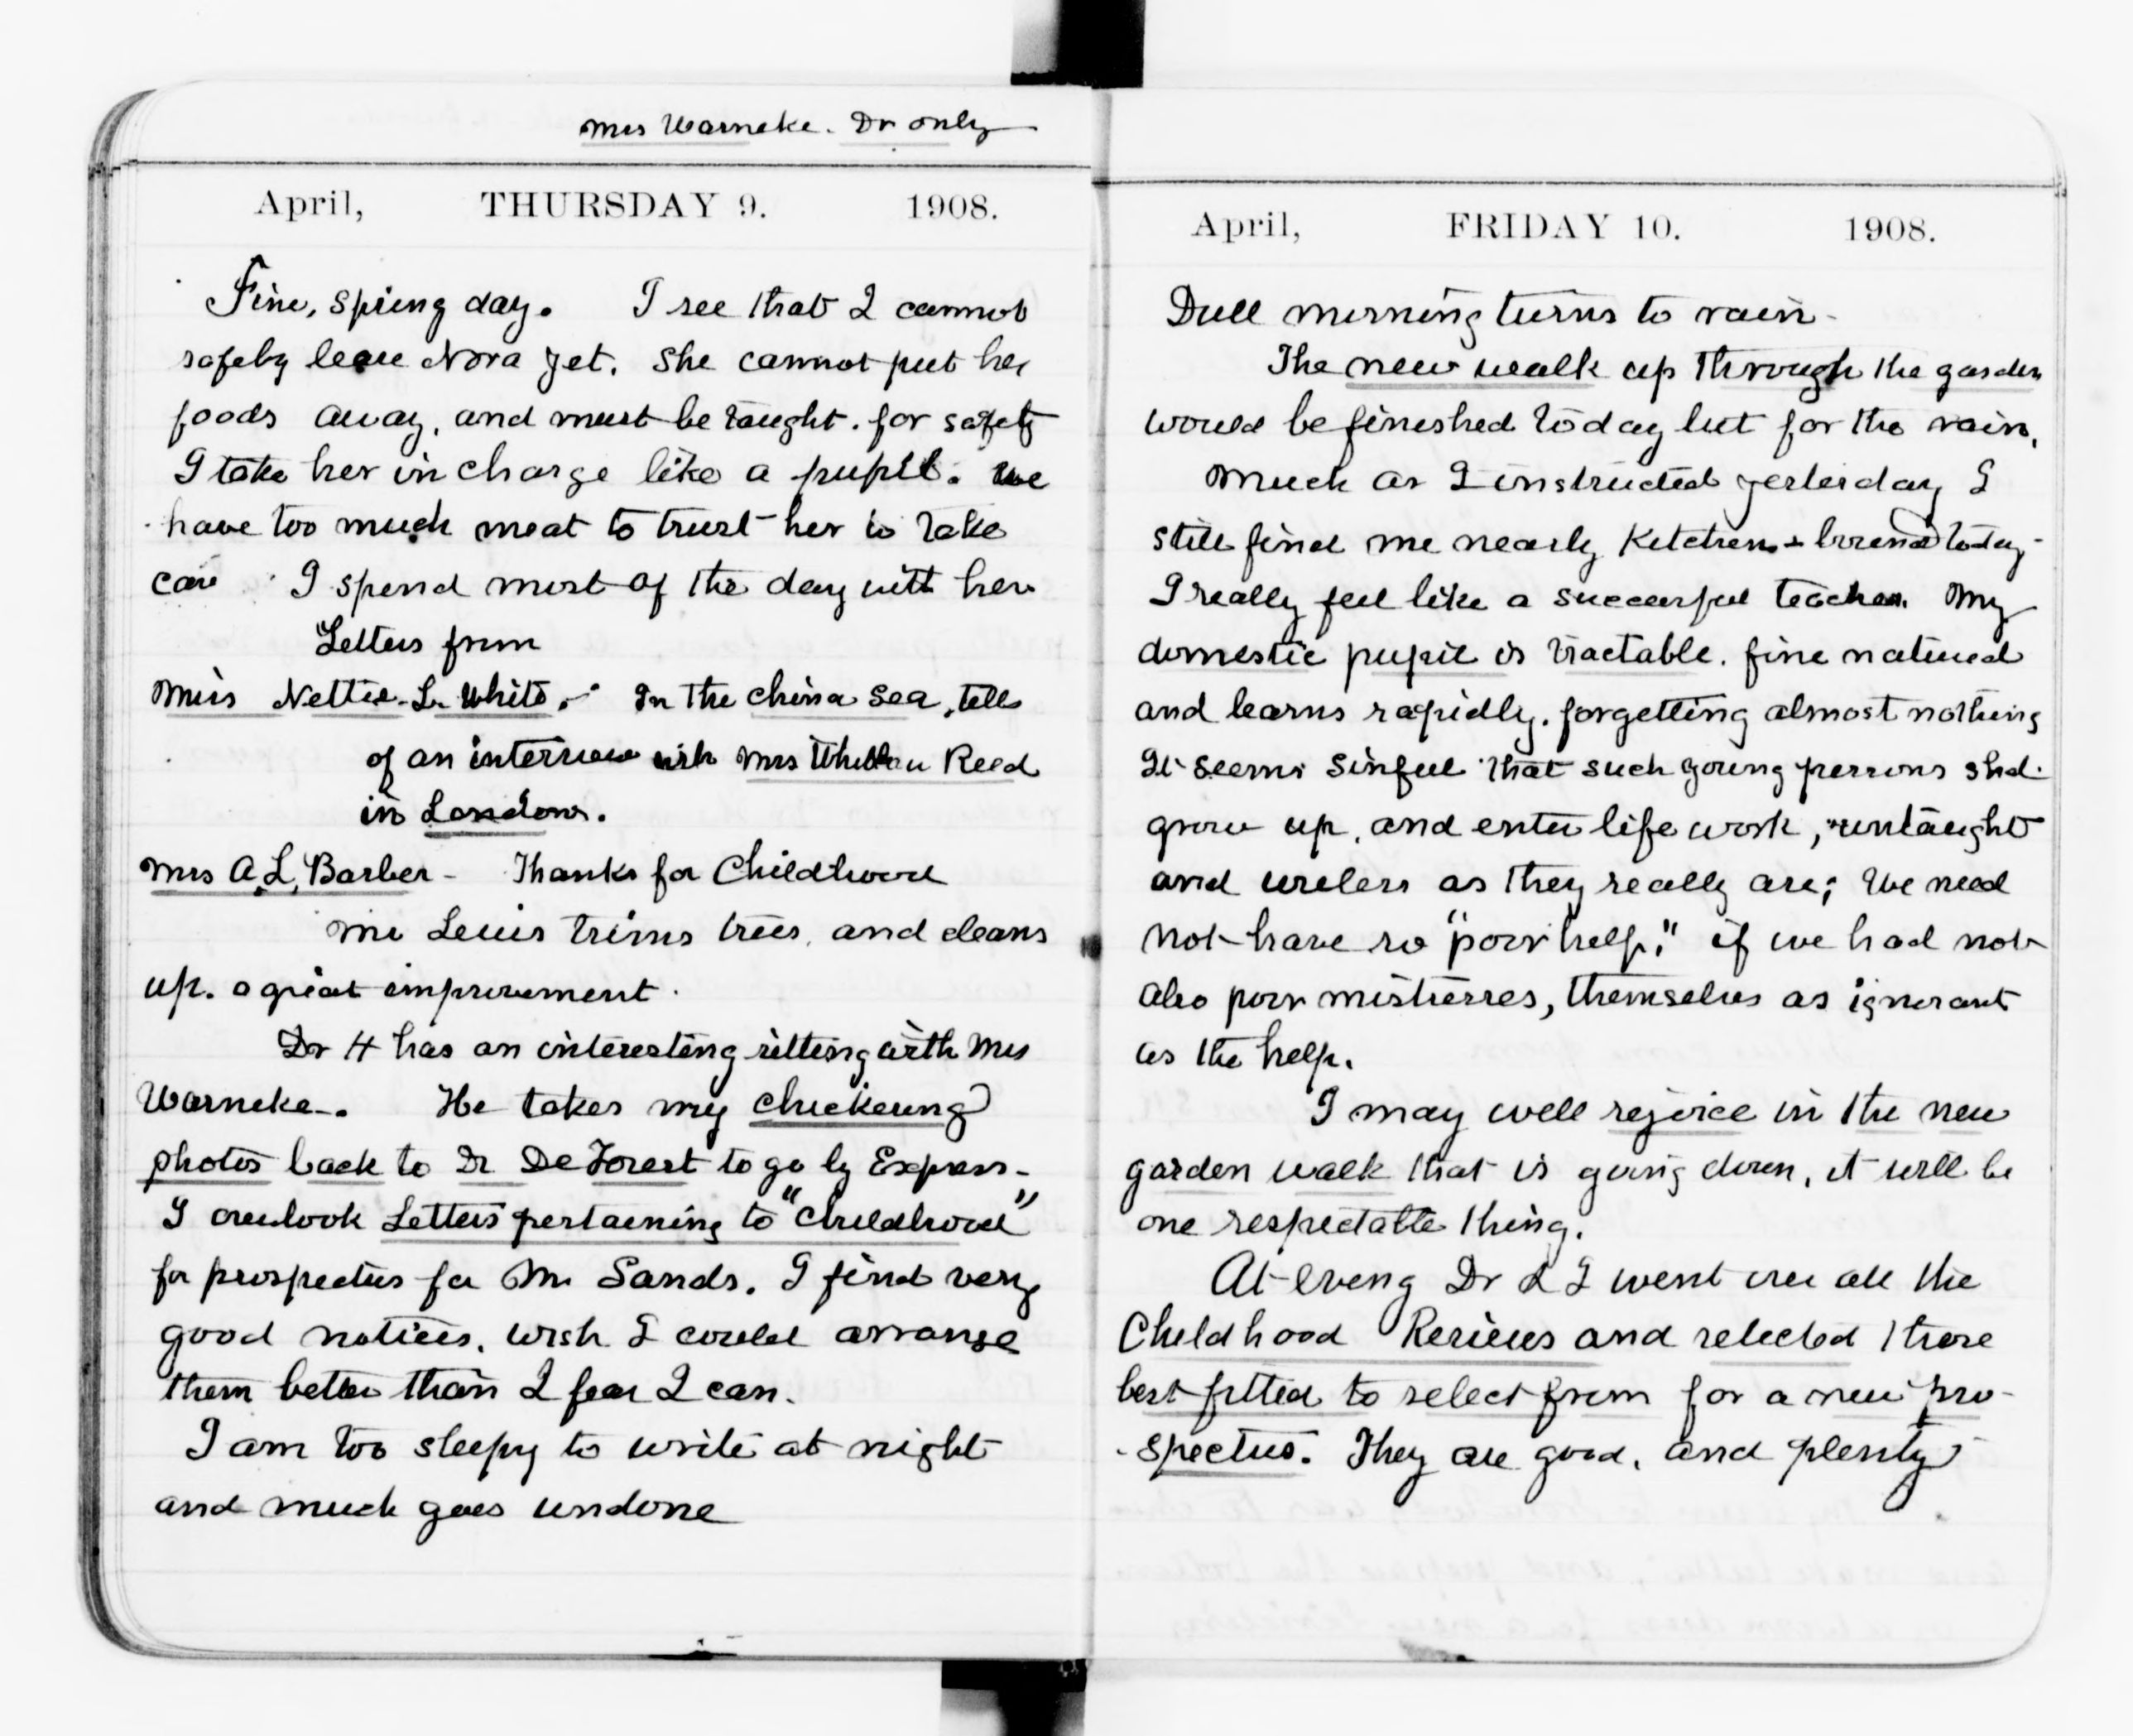 Mrs Warneke. Dr only
April, THURSDAY 9. 1908.
Fine, spring day. I see that I cannot
safely leave Nora yet. She cannot put her
foods away, and must be taught. for safety
I take her in charge like a pupil. We
have too much meat to trust her to take
care I spend most of the day with her
Letters from
Miss Nettie L. White. - In the China Sea, tells
of an interview with Mrs Whitelaw Reed
in London.
Mrs A. L. Barber - Thanks for Childhood
Mr Lewis trims trees, and cleans
up. a great improvement.
Dr H has an interesting sitting with Mrs
Warneke. He takes my Chickering
photos back to Dr DeForest to go by Express -
I overlook Letters pertaining to "Childhood"
for prospectus for Mr Sands. I find very
good notices. wish I could arrange
them better than I fear I can.
I am too sleepy to write at night
and much goes undone
April, FRIDAY 10. 1908.
Dull morning turns to rain -
The new walk up through the garden
would be finished today but for the rain.
Much as I instructed yesterday I
still find me nearly Kitchen + today -
I really feel like a successful teacher. My
domestic pupil is tractable. fine natured
and learns rapidly. forgetting almost nothing
It seems sinful that such young persons shd.
grow up, and enter life work, untaught
and useless as they really are; We need
not have so "poor help," if we had not
also poor mistresses, themselves as ignorant
as the help.
I may well rejoice in the new
garden walk that is going down, it will be
one respectable thing.
At eveng Dr & I went over all the
Childhood Reviews and selected those
best fitted to select from for a new pro-
-spectus. They are good, and plenty